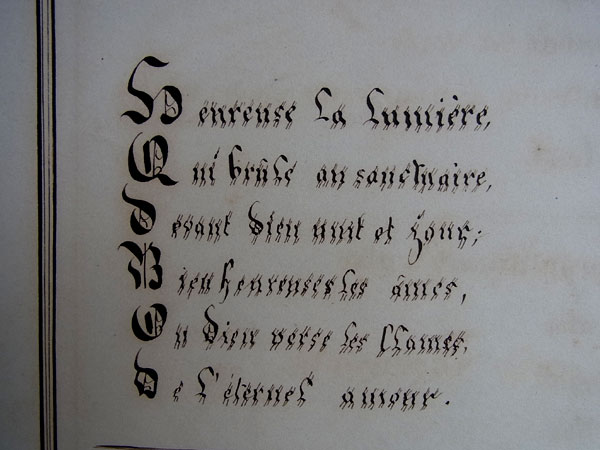 Heureuse la lumière,
Qui brûle au sanctuaire,
Devant Dieu nuit et jour;
Bienheureuses les âmes,
Ou Dieu verse les flames,
De l'éternel amour.